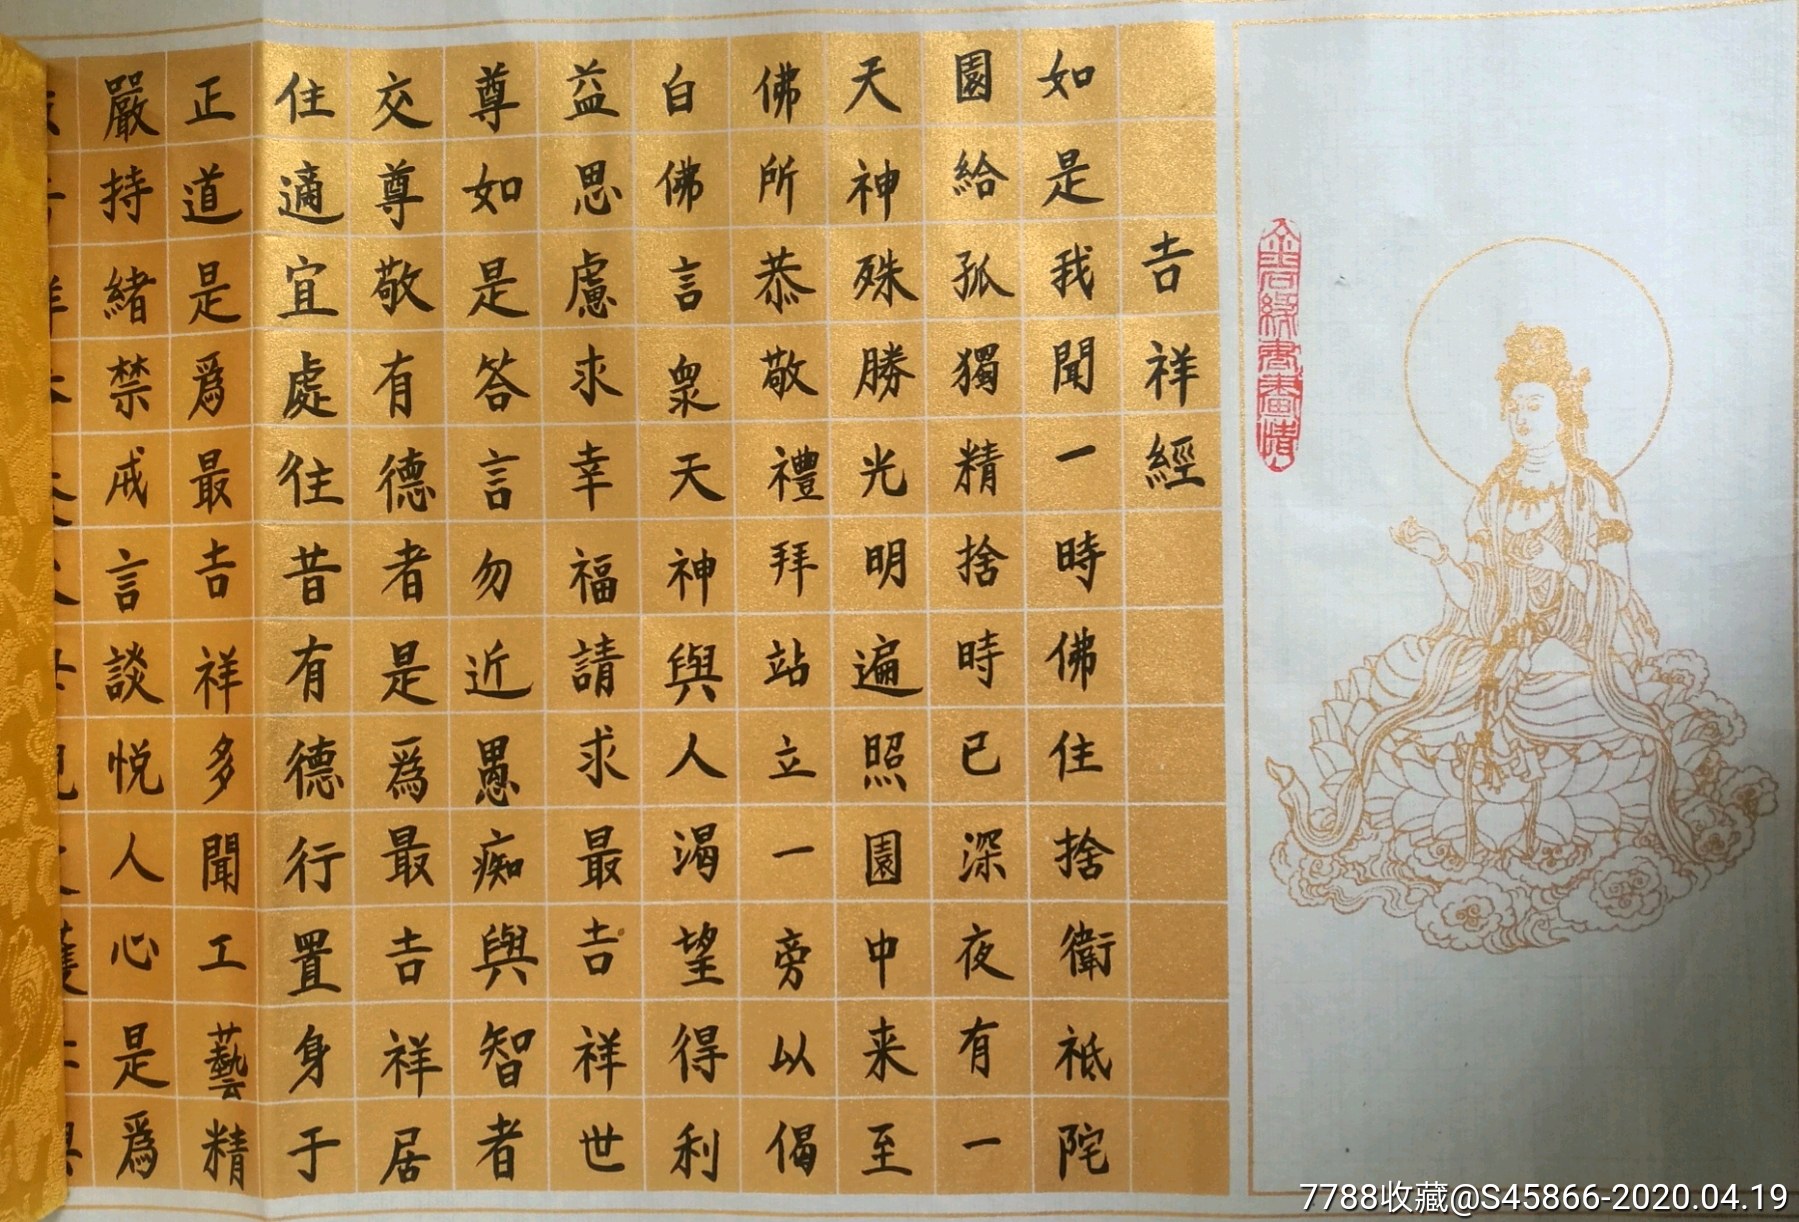 吉祥經
如是我聞一時佛住捨衛祇陀
園給孤獨精捨時已深夜有一
天神殊勝光明遍照園中来至
佛所恭敬禮拜站立一旁以偈
白佛言眾天神與人渴望得利
益思慮求幸福請求最吉祥世
尊如是答言勿近愚痴與智者
交尊敬有德者是爲最吉祥居
住適宜處往昔有德行置身于
正道是爲最吉祥多聞工藝精
嚴持緒禁戒言談悦人心是爲
7788收藏@S45866-2020.04.19